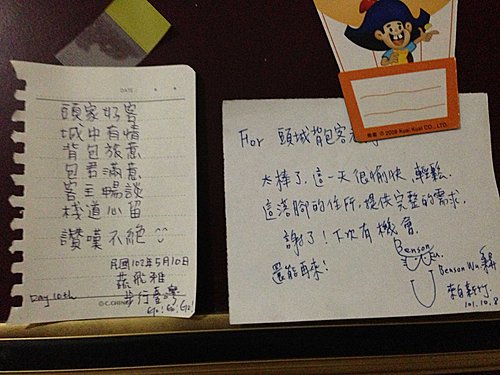 DATE
頭家好客
城中有情
背包旅意
包君滿意
客主暢談
棧道心留
讚嘆不絕
民國102年5月10日
步行臺灣
Day 10th
Go! Go! Go!
© 2009 Kuai Kuai CO., LTD.
For 頭城背包客
太棒了,這一天很愉快、輕鬆.
這落腳的住所,提供完整的需求,
謝了!下次有機會,
還能再來!
Benson
Benson Wu
來自新竹
101.10.8